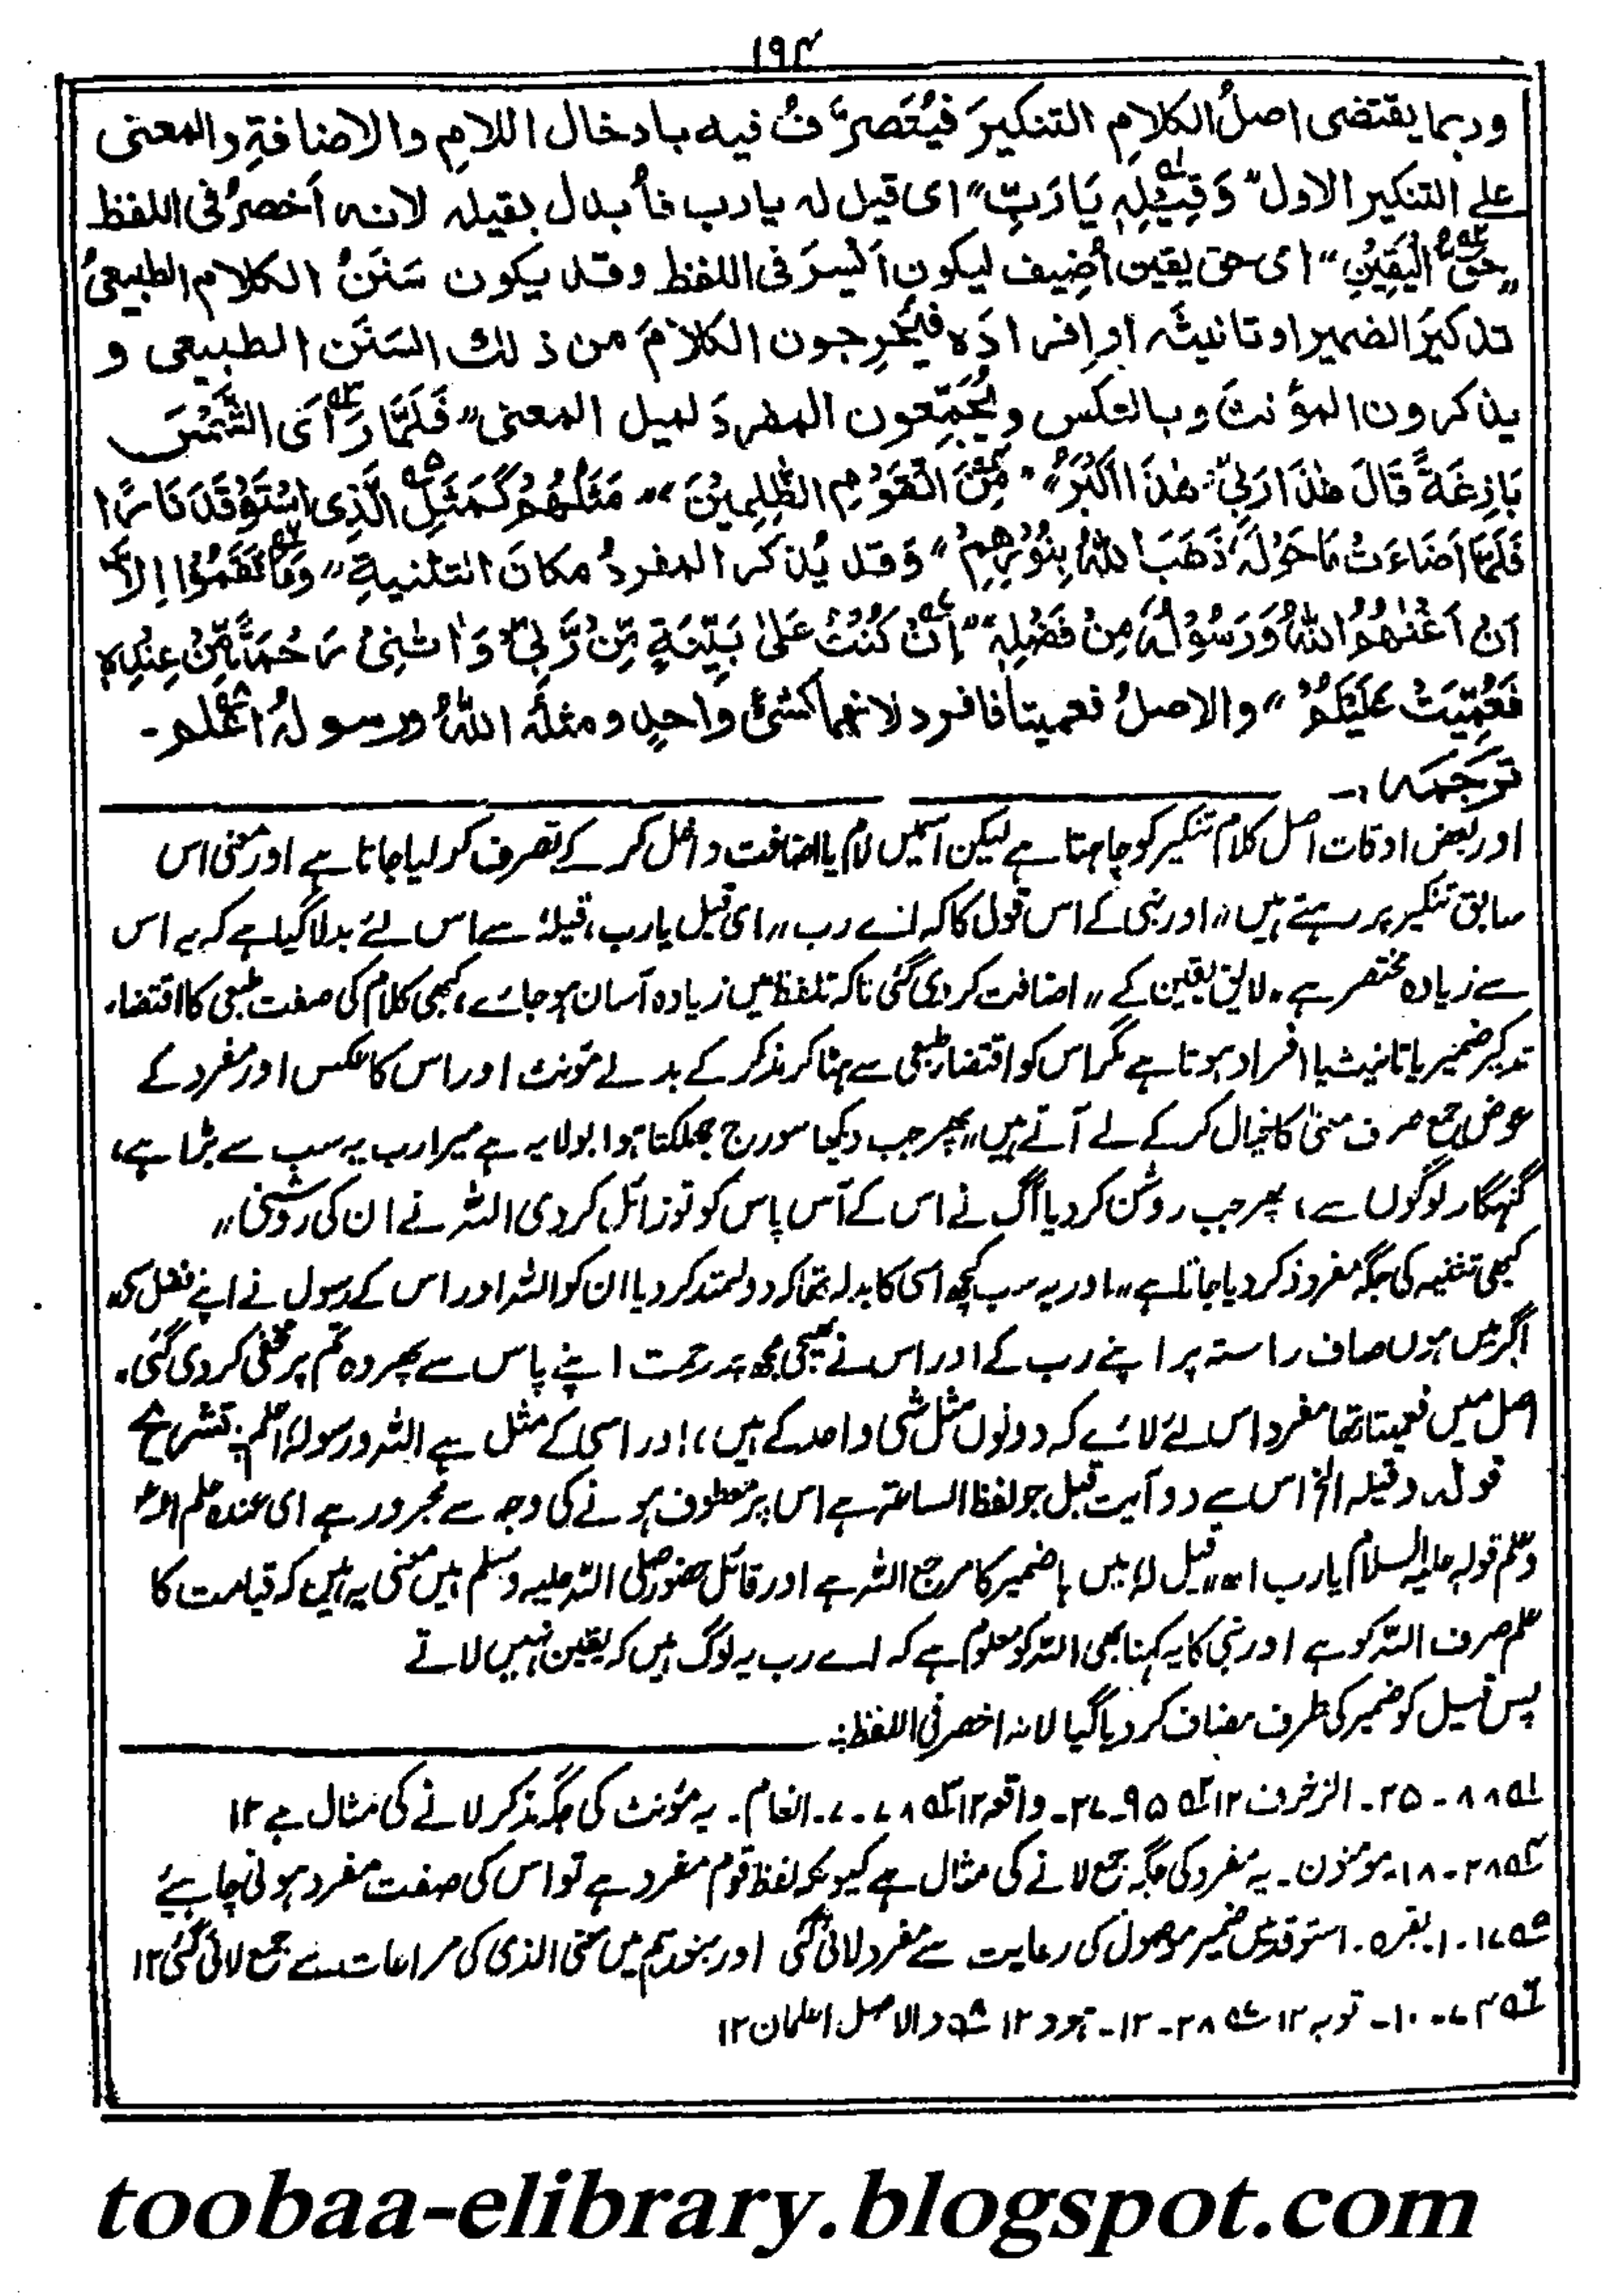 ۱۹۴
وربما يقتضى اصلُ الكلامِ التنكيرَ فيُتَصرَّفُ فيه بادخال اللامِ والاضافةِ والمعنى
على التنكير الاول "وَقِيْلِهٖ يَا رَبِّ" اى قيل له يارب فأبدل بقيله لانه اَخصرُ فى اللفظ
"حَقُّ الْيَقِيْنِ" اى حق يقين اُضِيف ليكون اَيْسرَ فى اللفظ وقد يكون سَنَنُ الكلام الطبيعىُّ
تذكيرَ الضمير او تانيثَه او افرادَه فيُخرِجون الكلامَ من ذلك السَنَنِ الطبيعى و
يذكرون المؤنث وبالعكس ويُجَمِّعون المفردَ لميل المعنى "فَلَمَّا رَاَى الشَّمْسَ
بَازِغَةً قَالَ هٰذَا رَبِّىْ هٰذَا اَكْبَرُ" "مِنَ الْقَوْمِ الظّٰلِمِيْنَ" "مَثَلُهُمْ كَمَثَلِ الَّذِى اسْتَوْقَدَ نَارًا
فَلَمَّا اَضَاءَتْ مَا حَوْلَهٗ ذَهَبَ اللهُ بِنُوْرِهِمْ" وَقد يُذكر المفردُ مكانَ التثنيةِ "وَمَا نَقَمُوْا اِلَّا
اَنْ اَغْنٰهُمُ اللهُ وَرَسُوْلُهٗ مِنْ فَضْلِهٖ" "اِنْ كُنْتُ عَلٰى بَيِّنَةٍ مِّنْ رَّبِّىْ وَاٰتٰنِىْ رَحْمَةً مِّنْ عِنْدِهٖ
فَعُمِّيَتْ عَلَيْكُمْ" والاصلُ فعميتا فافرد لانهما كشئ واحدٍ ومثلُه اللهُ ورسولُهٗ اعلم۔
ترجمہ :۔
اور بعض اوقات اصل کلام تنکیر کو چاہتا ہے لیکن اسمیں لام یا اضافت داخل کر کے تصرف کر لیا جاتا ہے اور معنی اس
سابق تنکیر پر رہتے ہیں "اور نبی کے اس قول کا کہ اے رب" ای قیل یارب، قیلہٖ سے اس لئے بدلا گیا ہے کہ یہ اس
سے زیادہ مختصر ہے۔ لائق یقین کے" اضافت کر دی گئی تاکہ تلفظ میں زیادہ آسان ہو جائے، کبھی کلام کی صفت طبعی کا اقتضاء
تذکیر ضمیر یا تانیث یا افراد ہوتا ہے مگر اس کو اقتضاء طبعی سے ہٹا کر مذکر کے بدلے مؤنث اور اس کا عکس اور مفرد کے
عوض جمع صرف معنیٰ کا خیال کر کے لے آتے ہیں "پھر جب دیکھا سورج جھلکتا ہوا بولا یہ ہے میرا رب یہ سب سے بڑا ہے،
گنہگار لوگوں سے، پھر جب روشن کر دیا آگ نے اس کے آس پاس کو تو زائل کر دی اللہ نے ان کی روشنی"
کبھی تثنیہ کی جگہ مفرد ذکر کر دیا جاتا ہے "اور یہ سب کچھ اسی کا بدلہ تھا کہ دولتمند کر دیا ان کو اللہ اور اس کے رسول نے اپنے فضل سے
اگر میں ہوں صاف راستہ پر اپنے رب کے اور اس نے بھیجی مجھ پر رحمت اپنے پاس سے پھر وہ تم پر مخفی کر دی گئی۔
اصل میں فعمیتا تھا مفرد اس لئے لائے کہ دونوں مثل شئی واحد کے ہیں، اور اسی کے مثل ہے اللہ ورسولہ اعلم: تشریح
قولہ وقیلہ الخ اس سے دو آیت قبل جو لفظ الساعۃ ہے اس پر معطوف ہونے کی وجہ سے مجرور ہے ای عندہ علم الساعۃ
وعلم قولہ علیہ السلام یارب اھ "قیل لہ" میں ہا ضمیر کا مرجع اللہ ہے اور قائل حضور صلی اللہ علیہ وسلم ہیں معنی یہ ہیں کہ قیامت کا
علم صرف اللہ کو ہے اور نبی کا یہ کہنا بھی اللہ کو معلوم ہے کہ اے رب یہ لوگ ہیں کہ یقین نہیں لاتے
پس قیل کو ضمیر کی طرف مضاف کر دیا گیا لانہ اخصر فی اللفظ:
۱ـ ۸۸۔ ۲۵۔ الزخرف ۱۲ ۲ـ ۹۵۔ ۲۷۔ واقعہ ۱۲ ۳ـ ۷۸۔ ۷۔ انعام۔ یہ مؤنث کی جگہ مذکر لانے کی مثال ہے ۱۲
۴ـ ۲۸۔ ۱۸۔ مومنون۔ یہ مفرد کی جگہ جمع لانے کی مثال ہے کیونکہ لفظ قوم مفرد ہے تو اس کی صفت مفرد ہونی چاہیئے
۵ـ ۱۷۔ ۱۔ بقرہ۔ استوقد میں ضمیر موصول کی رعایت سے مفرد لائی گئی اور بنورہم میں معنی الذی کی مراعات سے جمع لائی گئی ۱۲
۶ـ ۷۴۔ ۱۰۔ توبہ ۱۲ ۷ـ ۲۸۔ ۱۲۔ ہود ۱۲ ۸ـ والاصل اعلمان ۱۲
toobaa-elibrary.blogspot.com